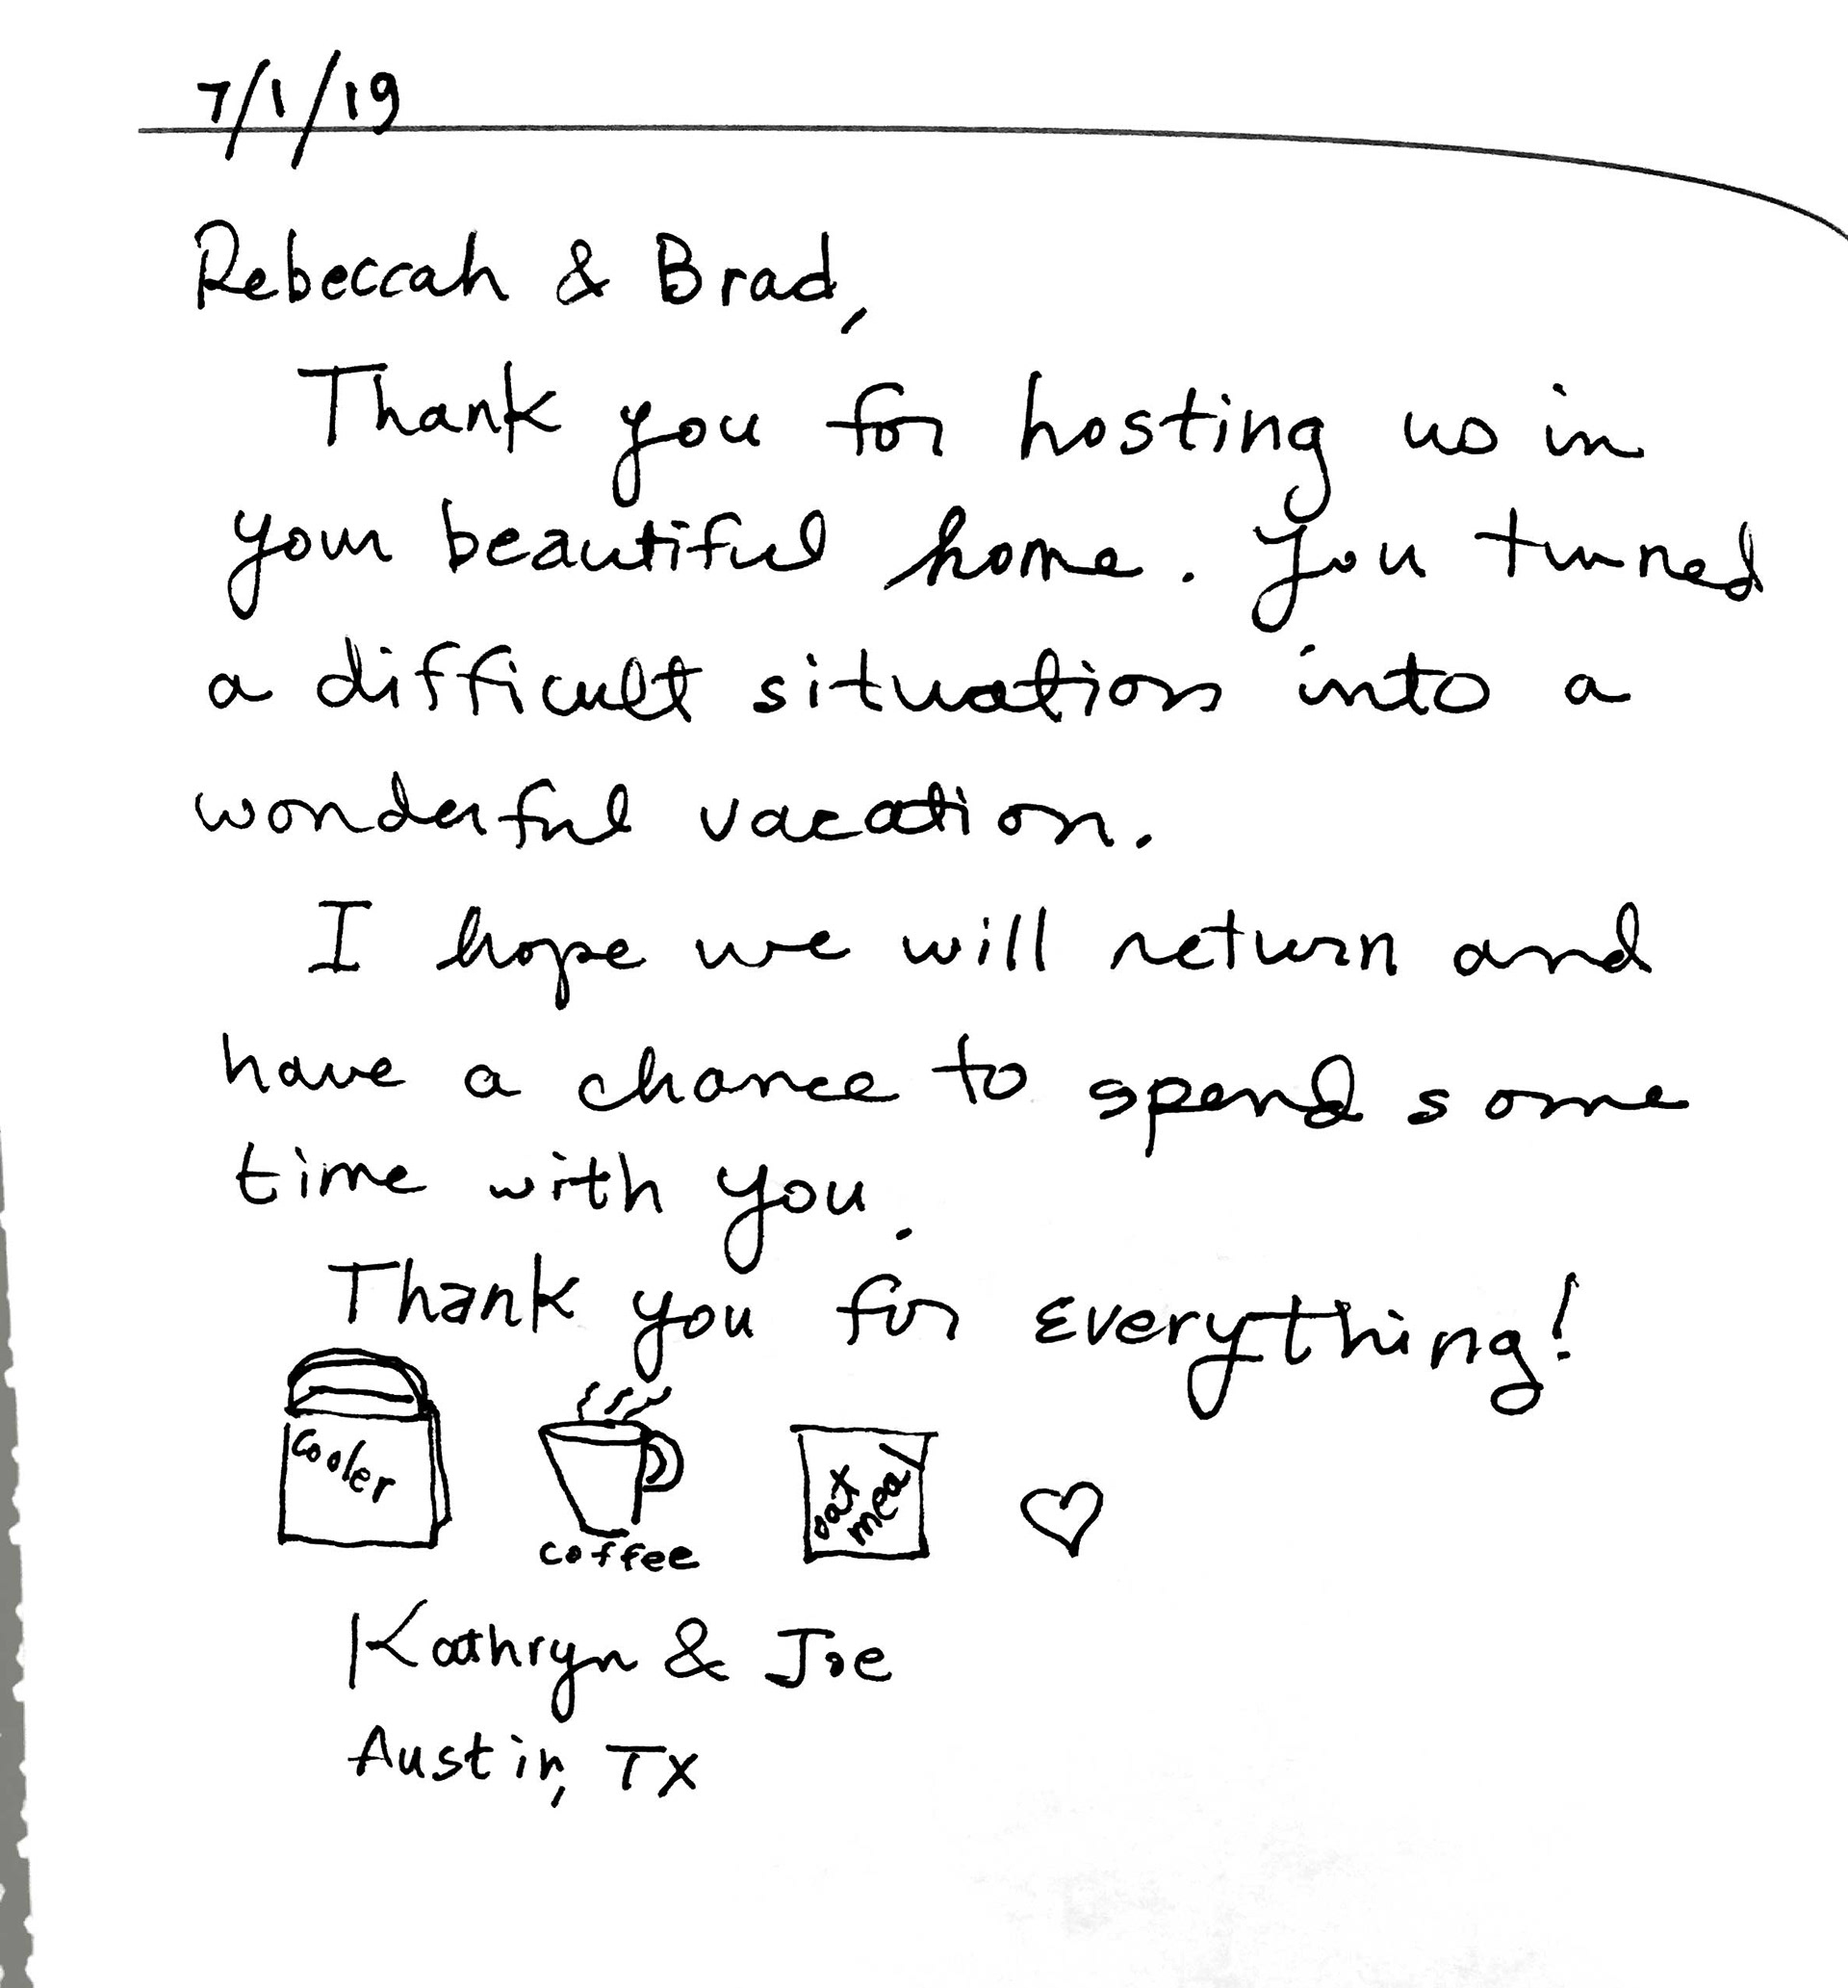 7/1/19
Rebeccah & Brad,
Thank you for hosting us in
your beautiful home. You turned
a difficult situation into a
wonderful vacation.
I hope we will return and
have a chance to spend some
time with you.
Thank you for everything!
Cooler
coffee
oat
meal
Kathryn & Joe
Austin, TX